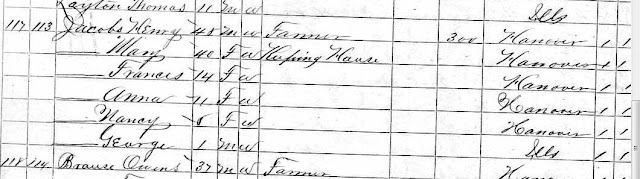 Layton Thomas 11 M W Ills
117 113 Jacobs Henry 45 M W Farmer 300 Hanover 1 1
Mary 40 F W Keeping House Hanover 1 1
Francis 14 F W Hanover 1 1
Anna 11 F W Hanover 1 1
Nancy F W Hanover 1 1
George 1 M W Ills 1 1
118 114 Brouse Owens 37 M W Farmer